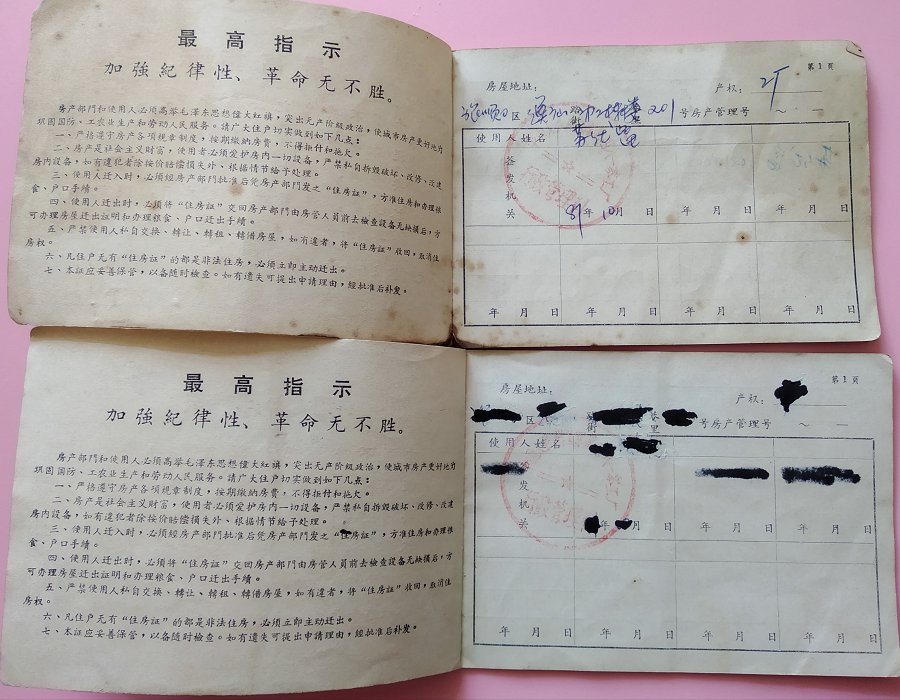 最高指示
加強紀律性、革命无不胜。
房产部門和使用人必須高举毛泽东思想偉大紅旗，突出无产阶級政治，使城市房产更好地为
巩固国防、工农业生产和劳动人民服务。请广大住户切实做到如下几点：
一、严格遵守房产各項規章制度，按期繳納房費，不得拒付和拖欠。
二、房产是社会主义財富，使用者必須爱护房内一切設备，严禁私自拆毁破坏、改修、改建
房内設备，如有違犯者除按价賠偿損失外、根据情节給予处理。
三、使用人迁入时，必須經房产部門批准后凭房产部門发之“住房証”，方准住房和办理粮
食、户口手續。
四、使用人迁出时，必須将“住房証”交回房产部門由房管人員前去檢查設备无缺損后，方
可办理房屋迁出証明和办理粮食、户口迁出手續。
五、严禁使用人私自交换、轉让、轉租、轉借房屋，如有違者，将“住房証”收回，取消住
房权。
六、凡住户无有“住房証”的都是非法住房，必須立即主动迁出。
七、本証应妥善保管，以备随时檢查。如有遺失可提出申請理由，經批准后补发。
第1頁
房屋地址：
产权：
区
201
号房产管理号 ～ ·－
使用人姓名
签
发
机
关
87年10月 日 年 月 日 年 月 日 年 月 日
年 月 日 年 月 日 年 月 日 年 月 日
最高指示
加強紀律性、革命无不胜。
房产部門和使用人必須高举毛泽东思想偉大紅旗，突出无产阶級政治，使城市房产更好地为
巩固国防、工农业生产和劳动人民服务。请广大住户切实做到如下几点：
一、严格遵守房产各項規章制度，按期繳納房費，不得拒付和拖欠。
二、房产是社会主义財富，使用者必須爱护房内一切設备，严禁私自拆毁破坏、改修、改建
房内設备，如有違犯者除按价賠偿損失外、根据情节給予处理。
三、使用人迁入时，必須經房产部門批准后凭房产部門发之“住房証”，方准住房和办理粮
食、户口手續。
四、使用人迁出时，必須将“住房証”交回房产部門由房管人員前去檢查設备无缺損后，方
可办理房屋迁出証明和办理粮食、户口迁出手續。
五、严禁使用人私自交换、轉让、轉租、轉借房屋，如有違者，将“住房証”收回，取消住
房权。
六、凡住户无有“住房証”的都是非法住房，必須立即主动迁出。
七、本証应妥善保管，以备随时檢查。如有遺失可提出申請理由，經批准后补发。
第1頁
房屋地址：
产权：
区 街 巷里 号房产管理号 ～ ·－
使用人姓名
发
机
关
年 日 年 月 日 年 月 日
年 月 日 年 月 日 年 月 日 年 月 日